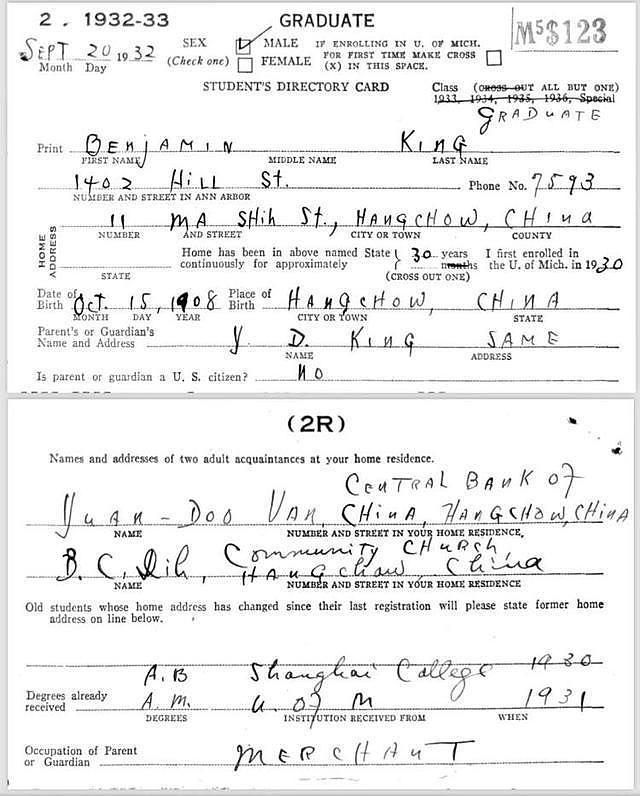 2. 1932-33 GRADUATE M5$123
SEPT 20 1932 SEX MALE IF ENROLLING IN U. OF MICH.
Month Day (Check one) FEMALE FOR FIRST TIME MAKE CROSS
(X) IN THIS SPACE.
STUDENT'S DIRECTORY CARD Class (CROSS OUT ALL BUT ONE)
1933, 1934, 1935, 1936, Special
GRADUATE
Print BENJAMIN KING
FIRST NAME MIDDLE NAME LAST NAME
1402 HILL St. Phone No. 7593
NUMBER AND STREET IN ANN ARBOR
HOME ADDRESS
11 MA SHIH ST., HANGCHOW, CHINA
NUMBER AND STREET CITY OR TOWN COUNTY
Home has been in above named State 30 years I first enrolled in
continuously for approximately months the U. of Mich. in 1930
STATE (CROSS OUT ONE)
Date of Birth Oct. 15, 1908 Place of Birth HANGCHOW, CHINA
MONTH DAY YEAR CITY OR TOWN STATE
Parent's or Guardian's
Name and Address Y D. KING SAME
NAME ADDRESS
Is parent or guardian a U. S. citizen? NO
(2R)
Names and addresses of two adult acquaintances at your home residence.
CENTRAL BANK OF
YUAN-DOO VAN, CHINA, HANGCHOW, CHINA
NAME NUMBER AND STREET IN YOUR HOME RESIDENCE,
B. C. Community CHURCH,
HANGchow, China
NAME NUMBER AND STREET IN YOUR HOME RESIDENCE
Old students whose home address has changed since their last registration will please state former home
address on line below.
A.B Shanghai College 1930
Degrees already
received A.M. U. of M 1931
DEGREES INSTITUTION RECEIVED FROM WHEN
Occupation of Parent
or Guardian MERCHANT